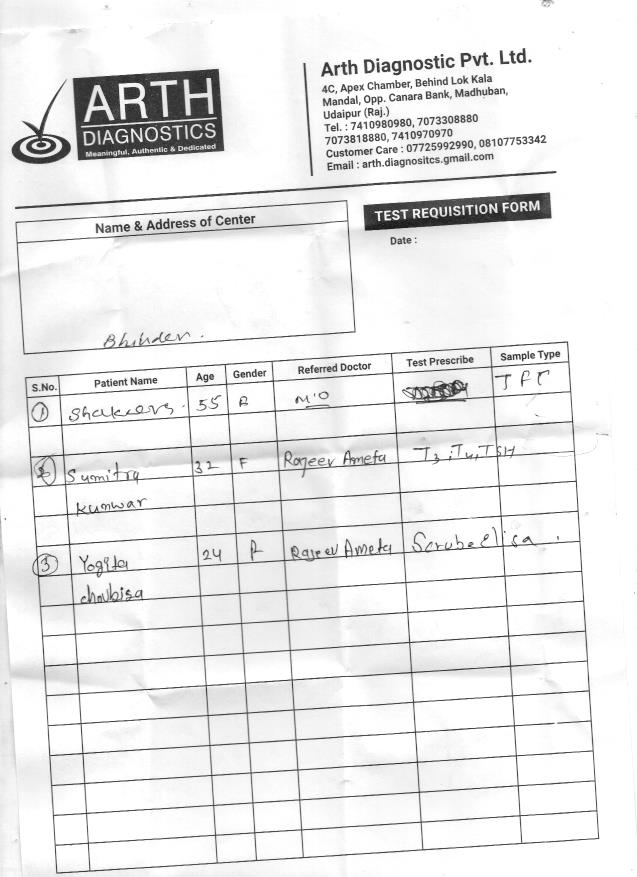 ARTH
DIAGNOSTICS
Meaningful, Authentic & Dedicated
Arth Diagnostic Pvt. Ltd.
4C, Apex Chamber, Behind Lok Kala
Mandal, Opp. Canara Bank, Madhuban,
Udaipur (Raj.)
Tel. : 7410980980, 7073308880
7073818880, 7410970970
Customer Care : 07725992990, 08107753342
Email : arth.diagnositcs.gmail.com
Name & Address of Center
TEST REQUISITION FORM
Date :
Bhinder.
S.No. Patient Name Age Gender Referred Doctor Test Prescribe Sample Type
1 55 M'O
2 Sumitra 32 F Rajeev Ameta T3, T4, TSH
Kunwar
3 Yogita 24 F Rajeev Ameta Scrub elisa.
choubisa